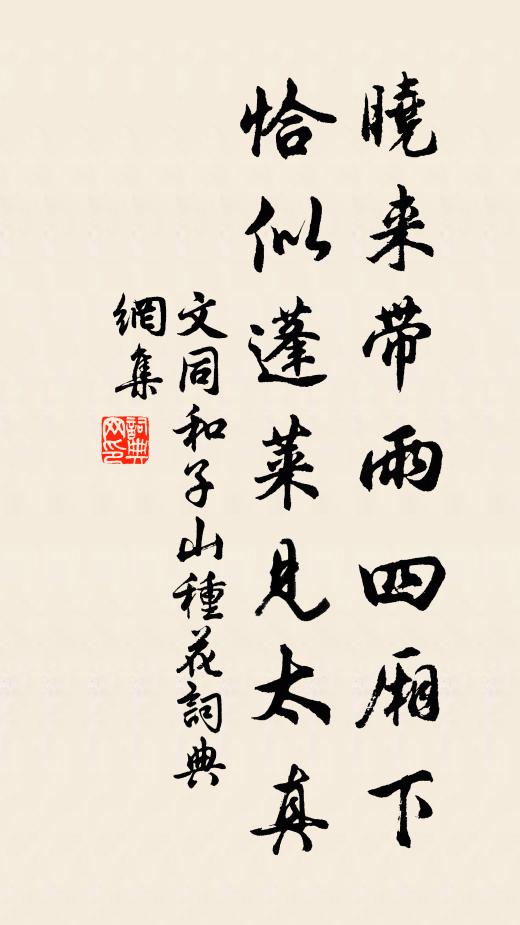 曉来帶雨四廂下
恰似蓬萊見太真
文同和子山種花詞典
網集
詞典
网印